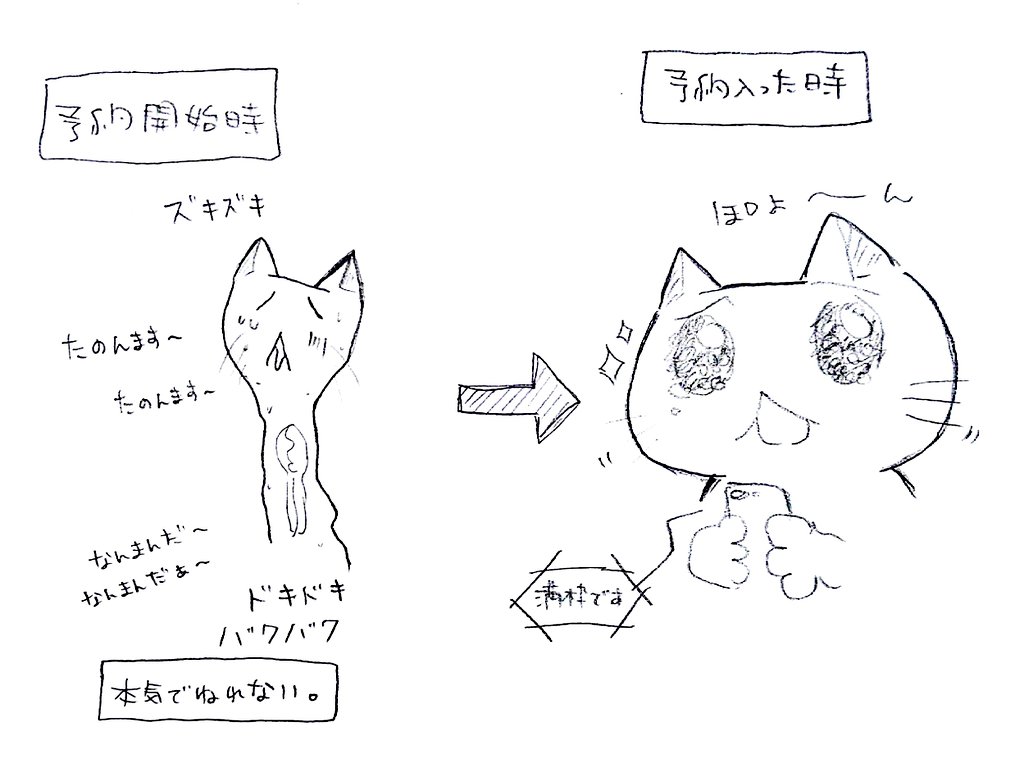 予約開始時
ズキズキ
たのんます〜
たのんます〜
なんまんだ〜
なんまんだぁ〜
ドキドキ
バクバク
本気でねれない。
予約入った時
ほわょ〜ん
満枠です